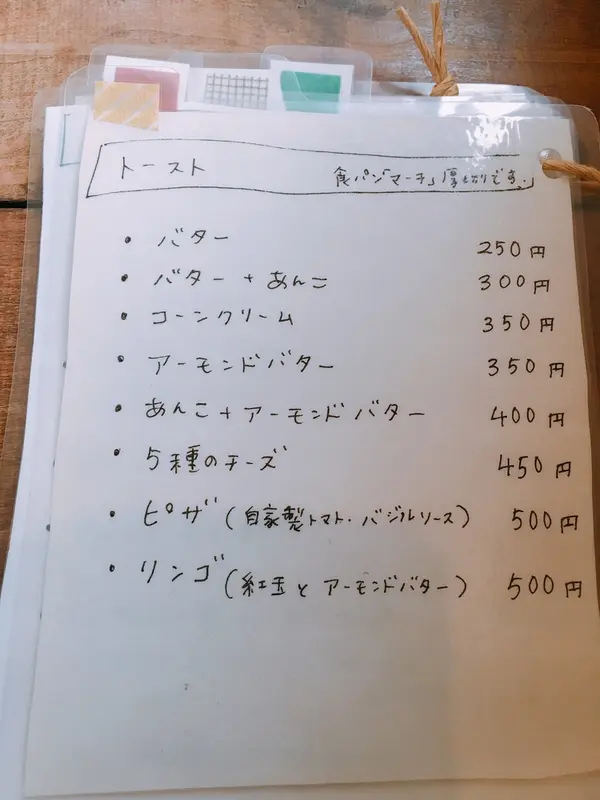 トースト
食パン「マーチ」厚切りです。
・バター 250円
・バター+あんこ 300円
・コーンクリーム 350円
・アーモンドバター 350円
・あんこ+アーモンドバター 400円
・5種のチーズ 450円
・ピザ(自家製トマト・バジルソース) 500円
・リンゴ(紅玉とアーモンドバター) 500円